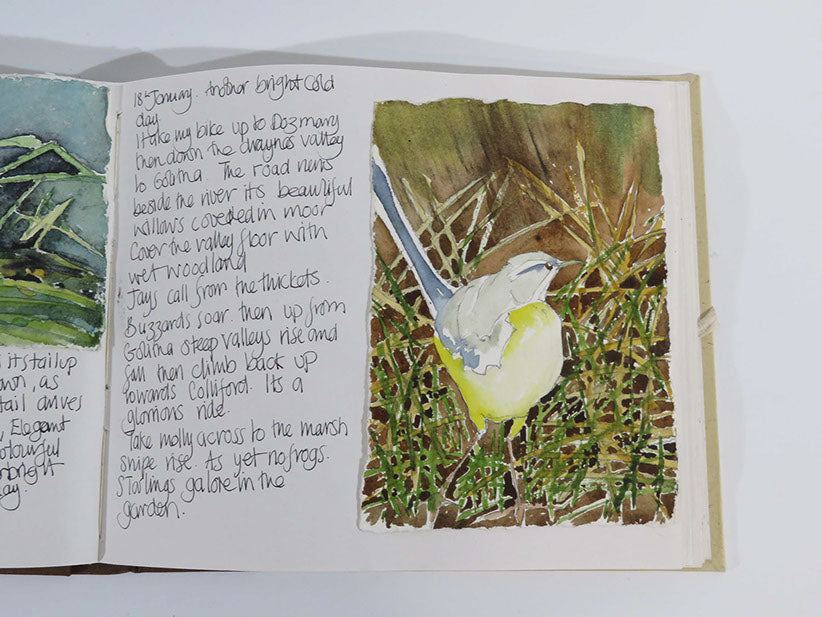 its tail up
own, as
tail drives
Elegant
olourful
nbright
ay.
18th January. Another bright cold
day.
I take my bike up to Dozmary
then down the draynes valley
to Golitha. The road runs
beside the river its beautiful
willows coveded in moor
Cover the valley floor with
wet woodland
Jays call from the thickets.
Buzzards soar. then up from
Golitha steep valleys rise and
fall then climb back up
towards Colliford. Its a
glorious ride.
Take molly across to the marsh
snipe rise. As yet no frogs.
Starlings galore in the
garden.